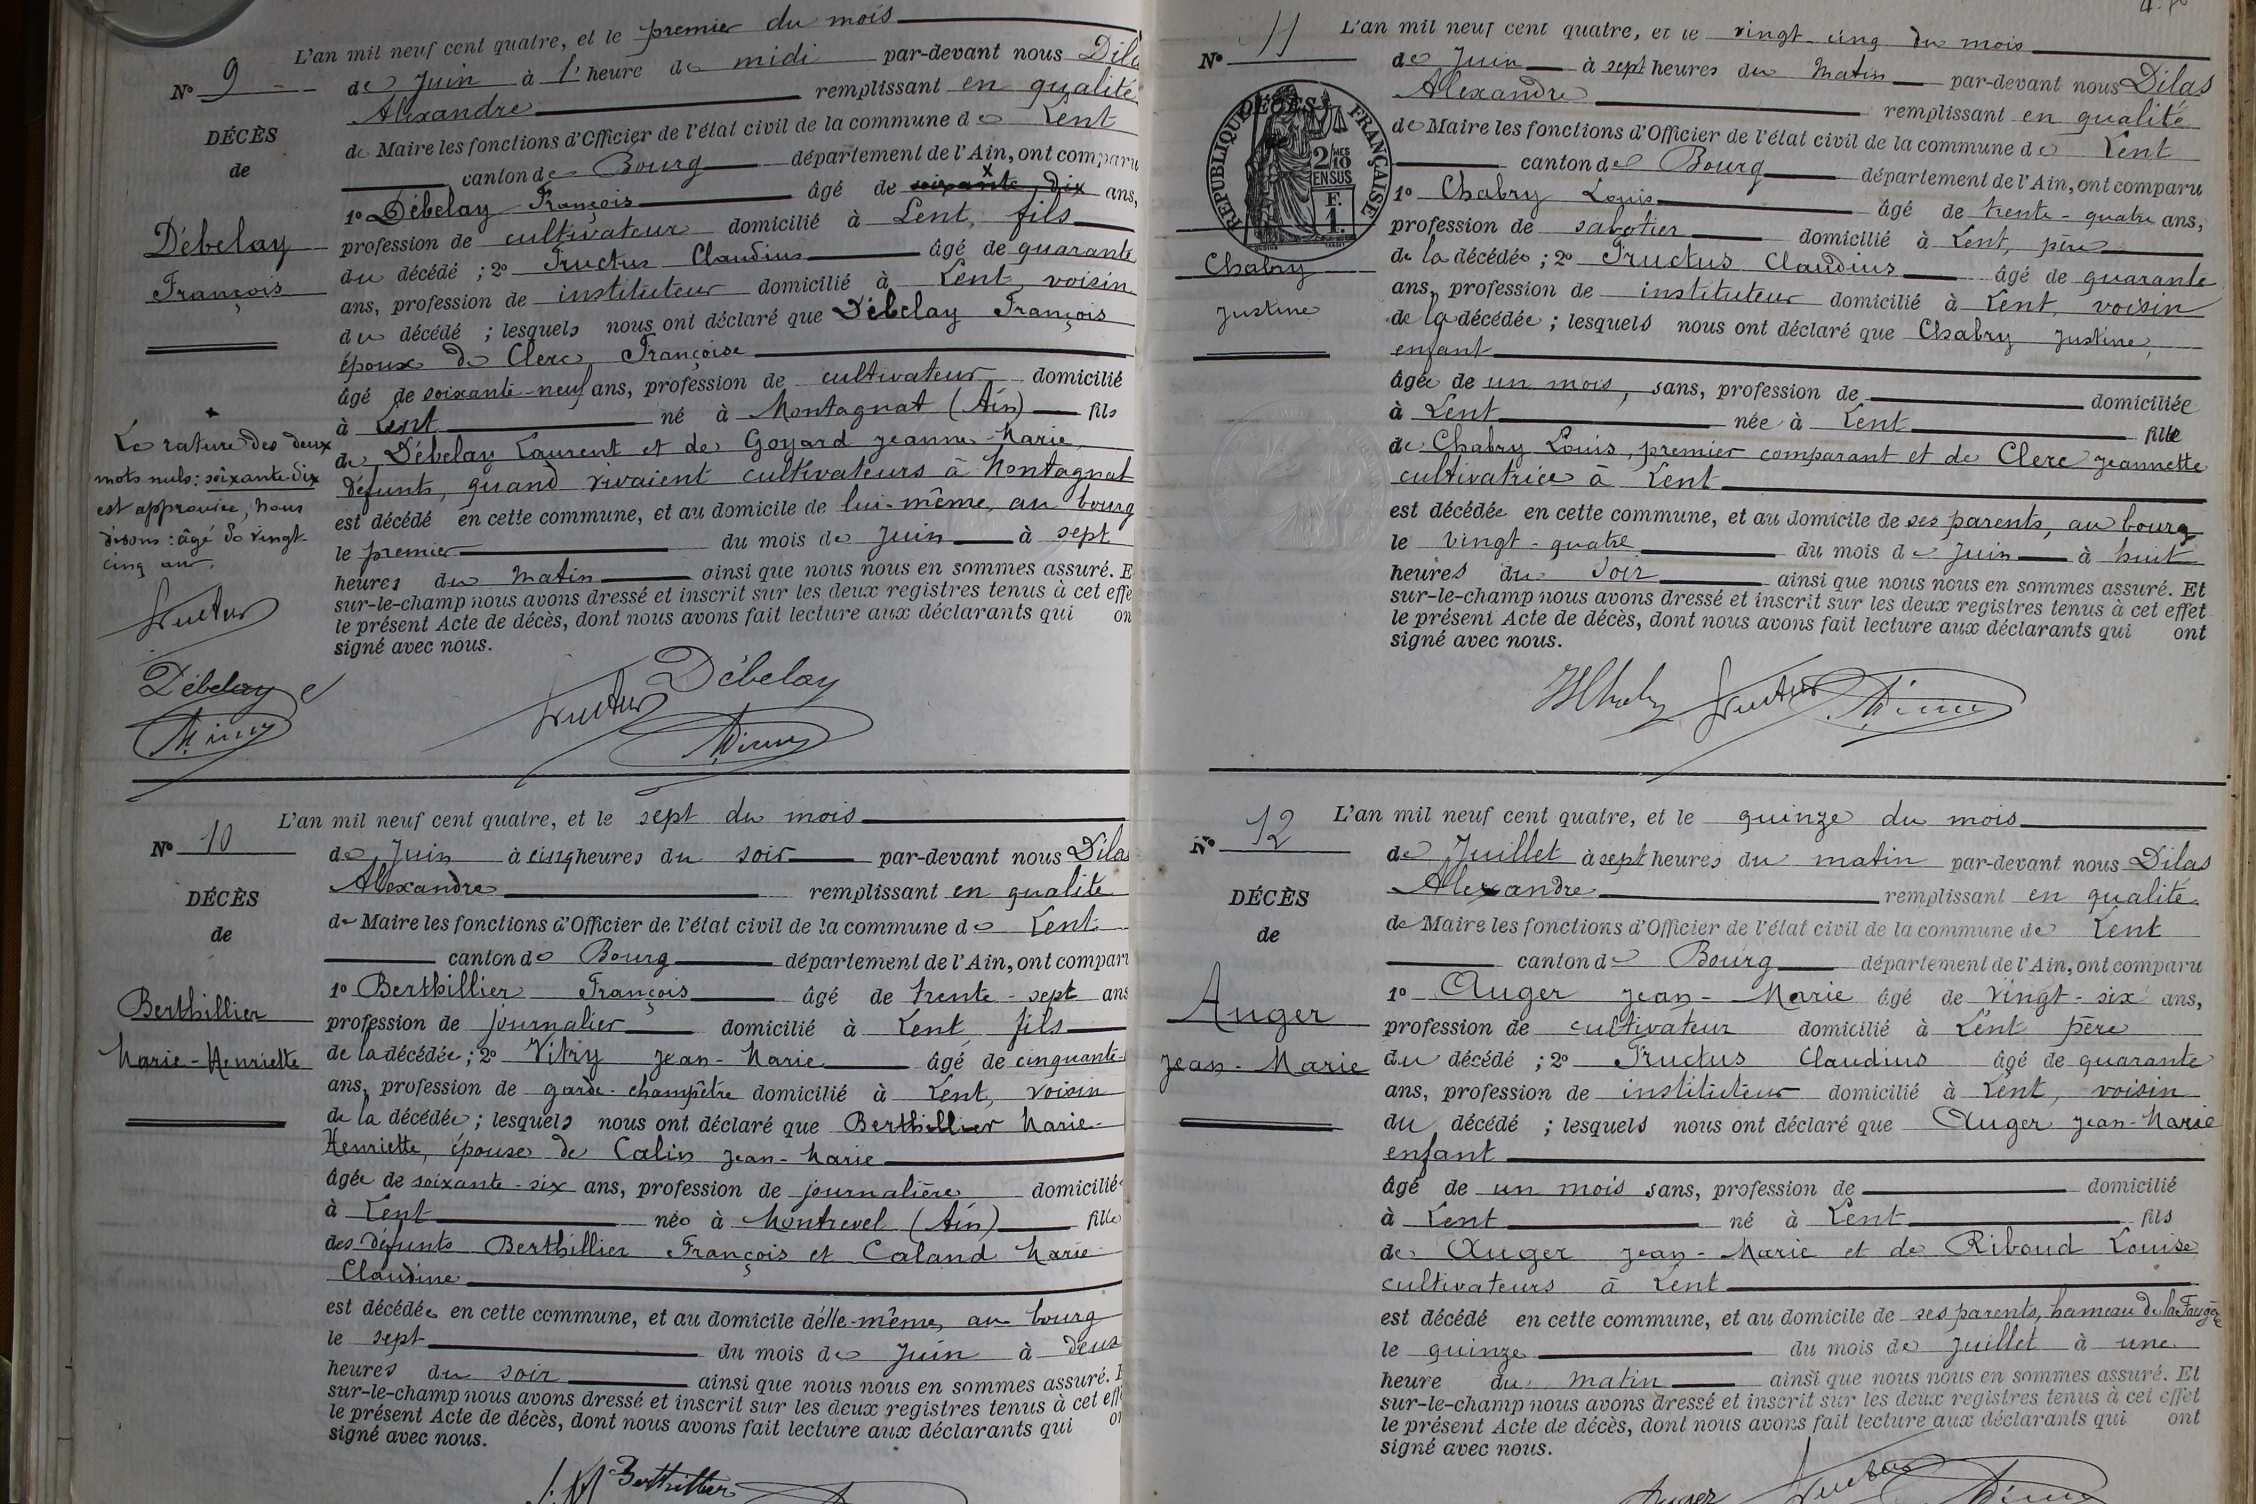 L'an mil neuf cent quatre, et le premier du mois
No 9
de Juin à l'heure de midi par-devant nous Dila
Alexandre remplissant en qualité
DÉCÈS
de Maire les fonctions d'Officier de l'état civil de la commune de Lent
de
canton de Bourg département de l'Ain, ont comparu
1o Débelay François âgé de soixante dix ans,
Débelay
profession de cultivateur domicilié à Lent, fils
François
du décédé ; 2o Fructus Claudius âgé de quarante
ans, profession de instituteur domicilié à Lent, voisin
du décédé ; lesquels nous ont déclaré que Débelay François
époux de Clerc Françoise
âgé de soixante-neuf ans, profession de cultivateur domicilié
à Lent né à Montagnat (Ain) fils
de Débelay Laurent et de Goyard Jeanne-Marie
défunts, quand vivaient cultivateurs à Montagnat
est décédé en cette commune, et au domicile de lui-même, au bourg
le premier du mois de Juin à sept
heures du matin ainsi que nous nous en sommes assuré. E
sur-le-champ nous avons dressé et inscrit sur les deux registres tenus à cet effe
le présent Acte de décès, dont nous avons fait lecture aux déclarants qui on
signé avec nous.
La rature des deux
mots nuls : soixante-dix
est approuvée, nous
disons : âgé de vingt-
cinq ans.
Fructus
Débelay
Débelay
Fructus
L'an mil neuf cent quatre, et le sept du mois
No 10
de Juin à cinq heures du soir par-devant nous Dilas
Alexandre remplissant en qualité
DÉCÈS
de Maire les fonctions d'Officier de l'état civil de la commune de Lent
de
canton de Bourg département de l'Ain, ont compar
1o Berthillier François âgé de trente-sept ans
Berthillier
profession de journalier domicilié à Lent, fils
Marie-Henriette
de la décédée ; 2o Vitry Jean-Marie âgé de cinquante-
ans, profession de garde-champêtre domicilié à Lent, voisin
de la décédée ; lesquels nous ont déclaré que Berthillier Marie-
Henriette, épouse de Calin Jean-Marie
âgée de soixante-six ans, profession de journalière domicilié
à Lent née à Montrevel (Ain) fille
des défunts Berthillier François et Caland Marie-
Claudine
est décédée en cette commune, et au domicile d'elle-même, au bourg
le sept du mois de Juin à deux
heures du soir ainsi que nous nous en sommes assuré. E
sur-le-champ nous avons dressé et inscrit sur les deux registres tenus à cet eff
le présent Acte de décès, dont nous avons fait lecture aux déclarants qui on
signé avec nous.
Berthillier
L'an mil neuf cent quatre, et le vingt-cinq du mois
No 11
de Juin à sept heures du matin par-devant nous Dilas
Alexandre remplissant en qualité
DÉCÈS
RÉPUBLIQUE FRANÇAISE
2/10 MES
EN SUS
F.
1.
de Maire les fonctions d'Officier de l'état civil de la commune de Lent
canton de Bourg département de l'Ain, ont comparu
1o Chabry Louis âgé de trente-quatre ans,
profession de sabotier domicilié à Lent, père
Chabry
de la décédée ; 2o Fructus Claudius âgé de quarante
Justine
ans, profession de instituteur domicilié à Lent, voisin
de la décédée ; lesquels nous ont déclaré que Chabry Justine,
enfant
âgée de un mois, sans, profession de domiciliée
à Lent née à Lent fille
de Chabry Louis, premier comparant et de Clerc Jeannette
cultivatrice à Lent
est décédée en cette commune, et au domicile de ses parents, au bourg
le vingt-quatre du mois de Juin à huit
heures du soir ainsi que nous nous en sommes assuré. Et
sur-le-champ nous avons dressé et inscrit sur les deux registres tenus à cet effet
le présent Acte de décès, dont nous avons fait lecture aux déclarants qui ont
signé avec nous.
Fructus
L'an mil neuf cent quatre, et le quinze du mois
No 12
de Juillet à sept heures du matin par-devant nous Dilas
Alexandre remplissant en qualité
DÉCÈS
de Maire les fonctions d'Officier de l'état civil de la commune de Lent
de
canton de Bourg département de l'Ain, ont comparu
1o Auger Jean-Marie âgé de vingt-six ans,
Auger
profession de cultivateur domicilié à Lent père
Jean-Marie
du décédé ; 2o Fructus Claudius âgé de quarante
ans, profession de instituteur domicilié à Lent, voisin
du décédé ; lesquels nous ont déclaré que Auger Jean-Marie
enfant
âgé de un mois sans, profession de domicilié
à Lent né à Lent fils
de Auger Jean-Marie et de Riboud Louise
cultivateurs à Lent
est décédé en cette commune, et au domicile de ses parents, hameau de la Fougère
le quinze du mois de Juillet à une
heure du matin ainsi que nous nous en sommes assuré. Et
sur-le-champ nous avons dressé et inscrit sur les deux registres tenus à cet effet
le présent Acte de décès, dont nous avons fait lecture aux déclarants qui ont
signé avec nous.
Auger
Fructus